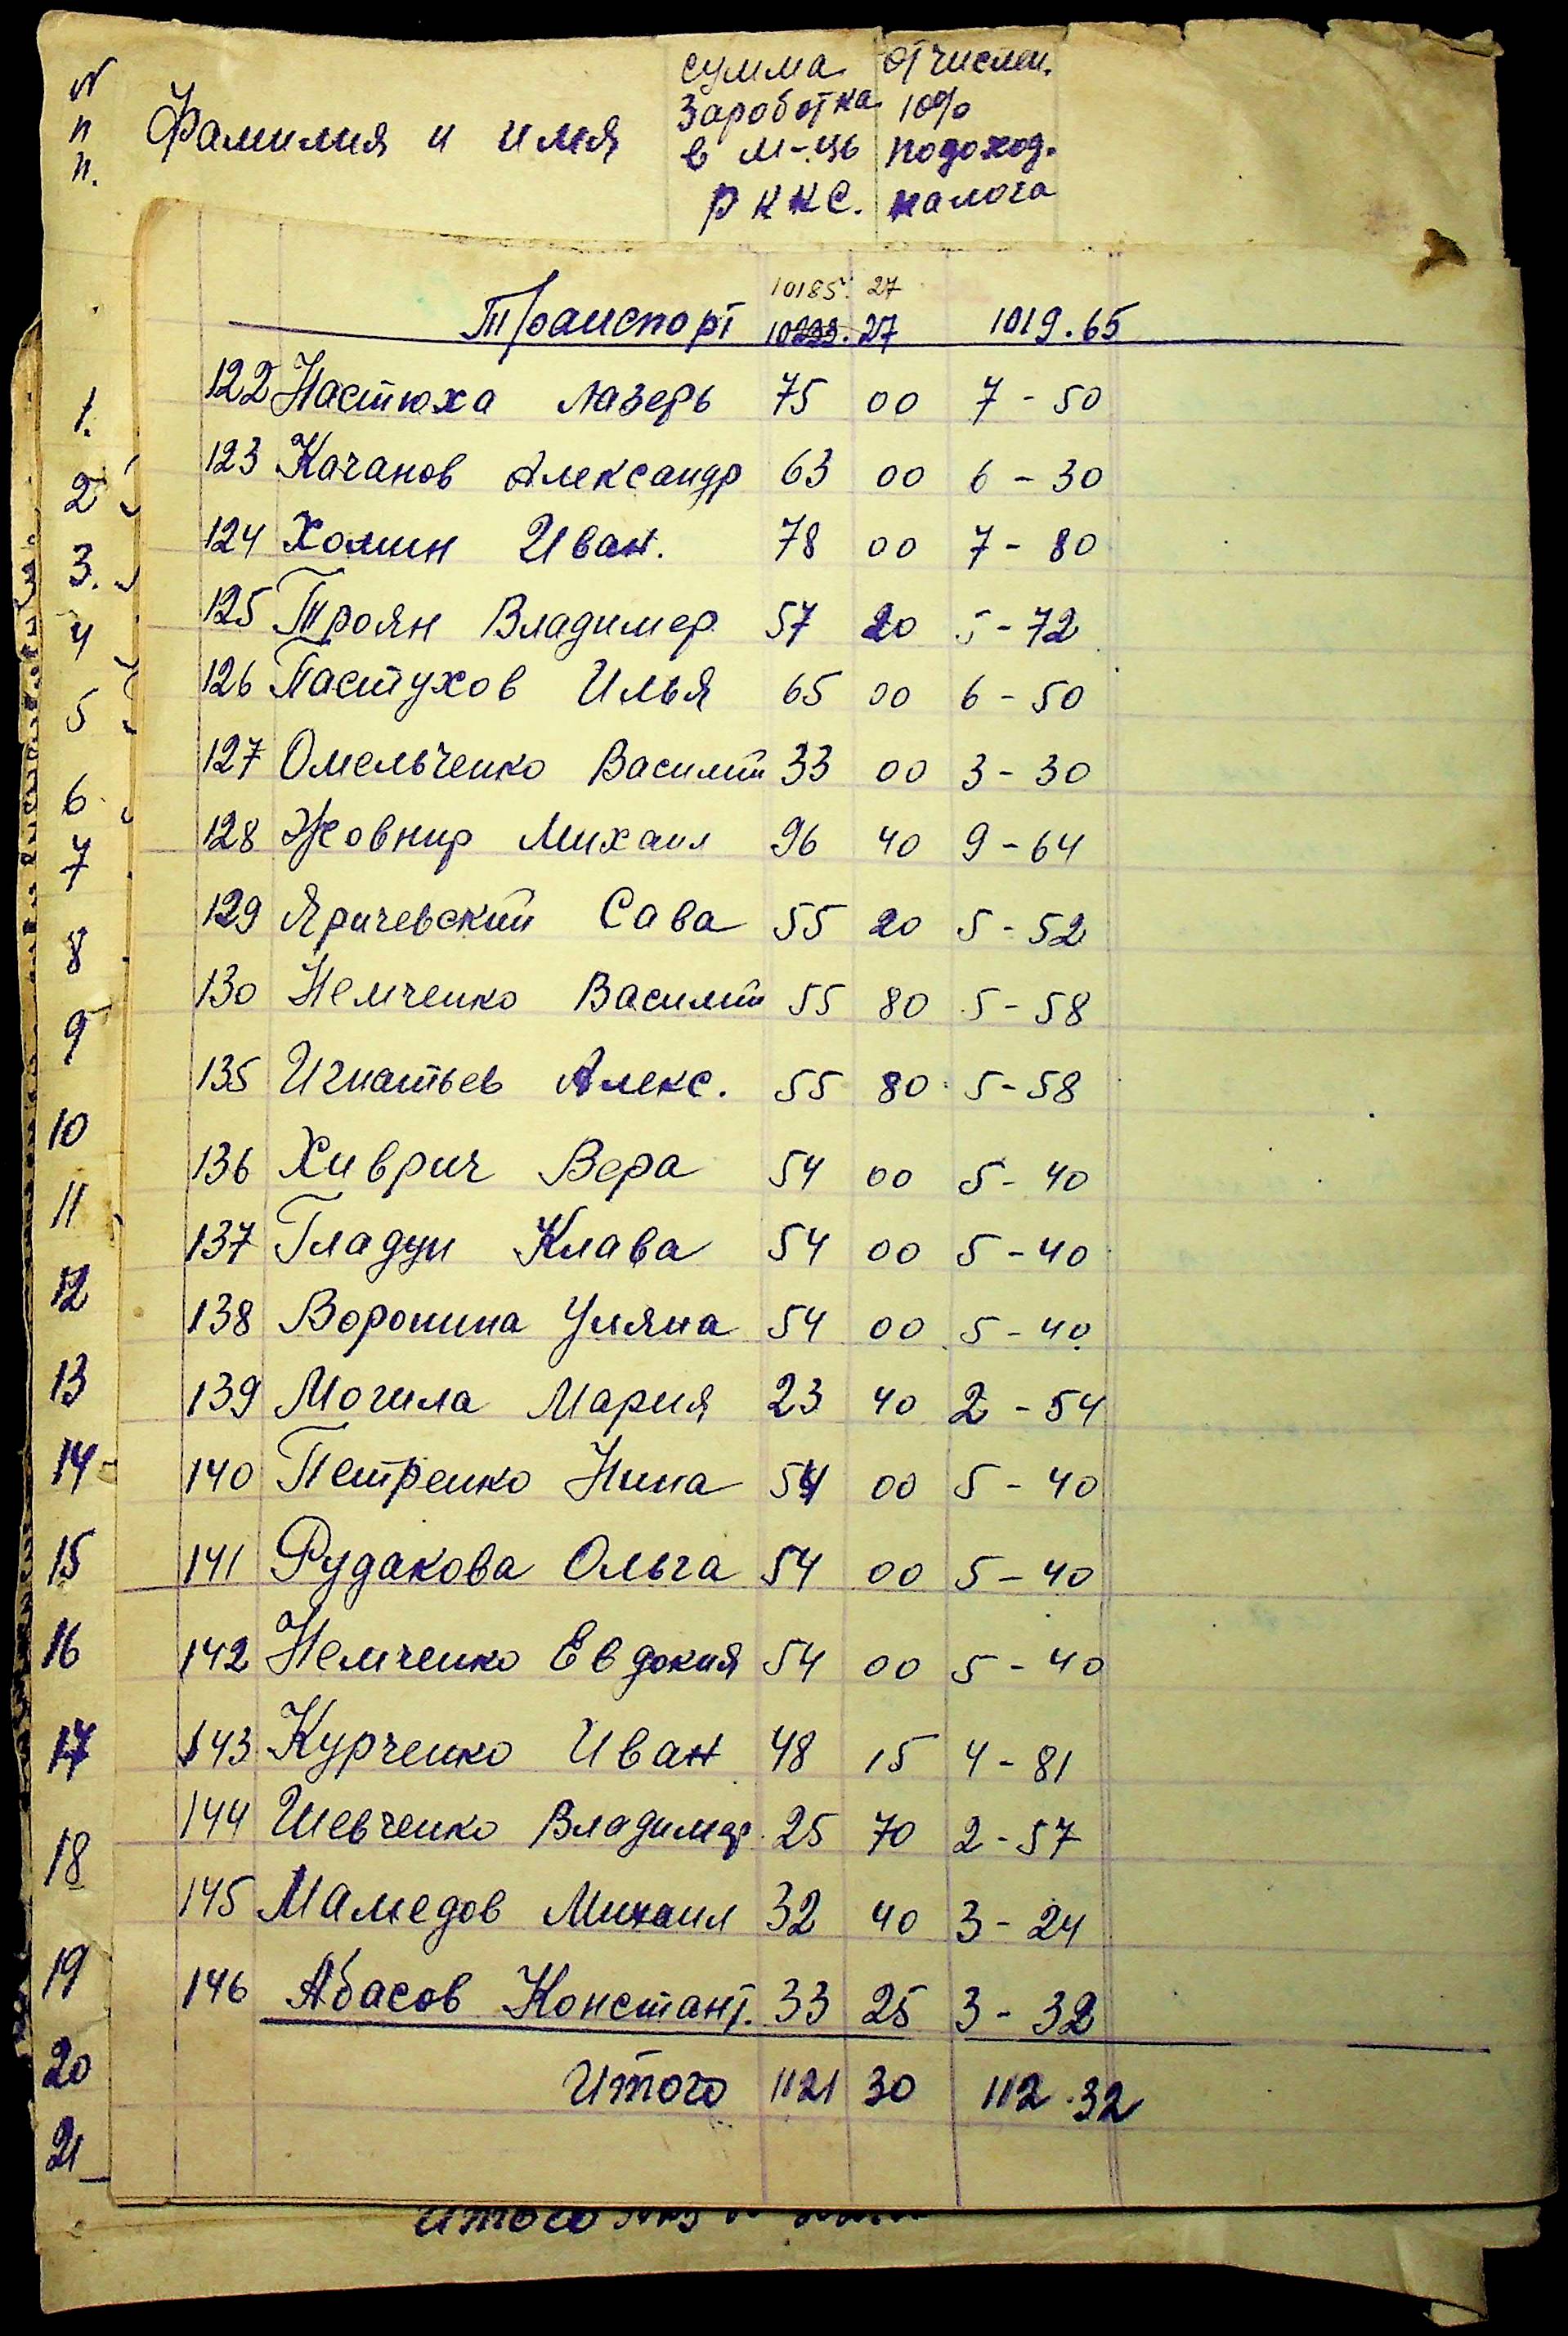 N п п. Фамилия и имя
сумма зароботка в м-це
р к к с.
отчислен. 10% подоход. налога
10185. 27
Транспорт 27 1019.65
122 Настюха Лазерь 75 00 7-50
123 Качанов Александр 63 00 6-30
124 Хомин Иван. 78 00 7-80
125 Троян Владимер 57 20 5-72
126 Пастухов Илья 65 00 6-50
127 Омельченко Василий 33 00 3-30
128 Жовнир Михаил 96 40 9-64
129 Яричевский Сава 55 20 5-52
130 Немченко Василий 55 80 5-58
135 Игнатьев Алекс. 55 80 5-58
136 Хиврич Вера 54 00 5-40
137 Гладун Клава 54 00 5-40
138 Воронина Уляна 54 00 5-40
139 Могила Мария 23 40 2-54
140 Петренко Нина 54 00 5-40
141 Рудакова Ольга 54 00 5-40
142 Немченко Евдокия 54 00 5-40
143 Курченко Иван 48 15 4-81
144 Шевченко Владимер 25 70 2-57
145 Мамедов Михаил 32 40 3-24
146 Абасов Констант. 33 25 3-32
Итого 1121 30 112.32
1.
2
3.
4
5
6
7
8
9
10
11
12
13
14
15
16
17
18
19
20
21
Итого